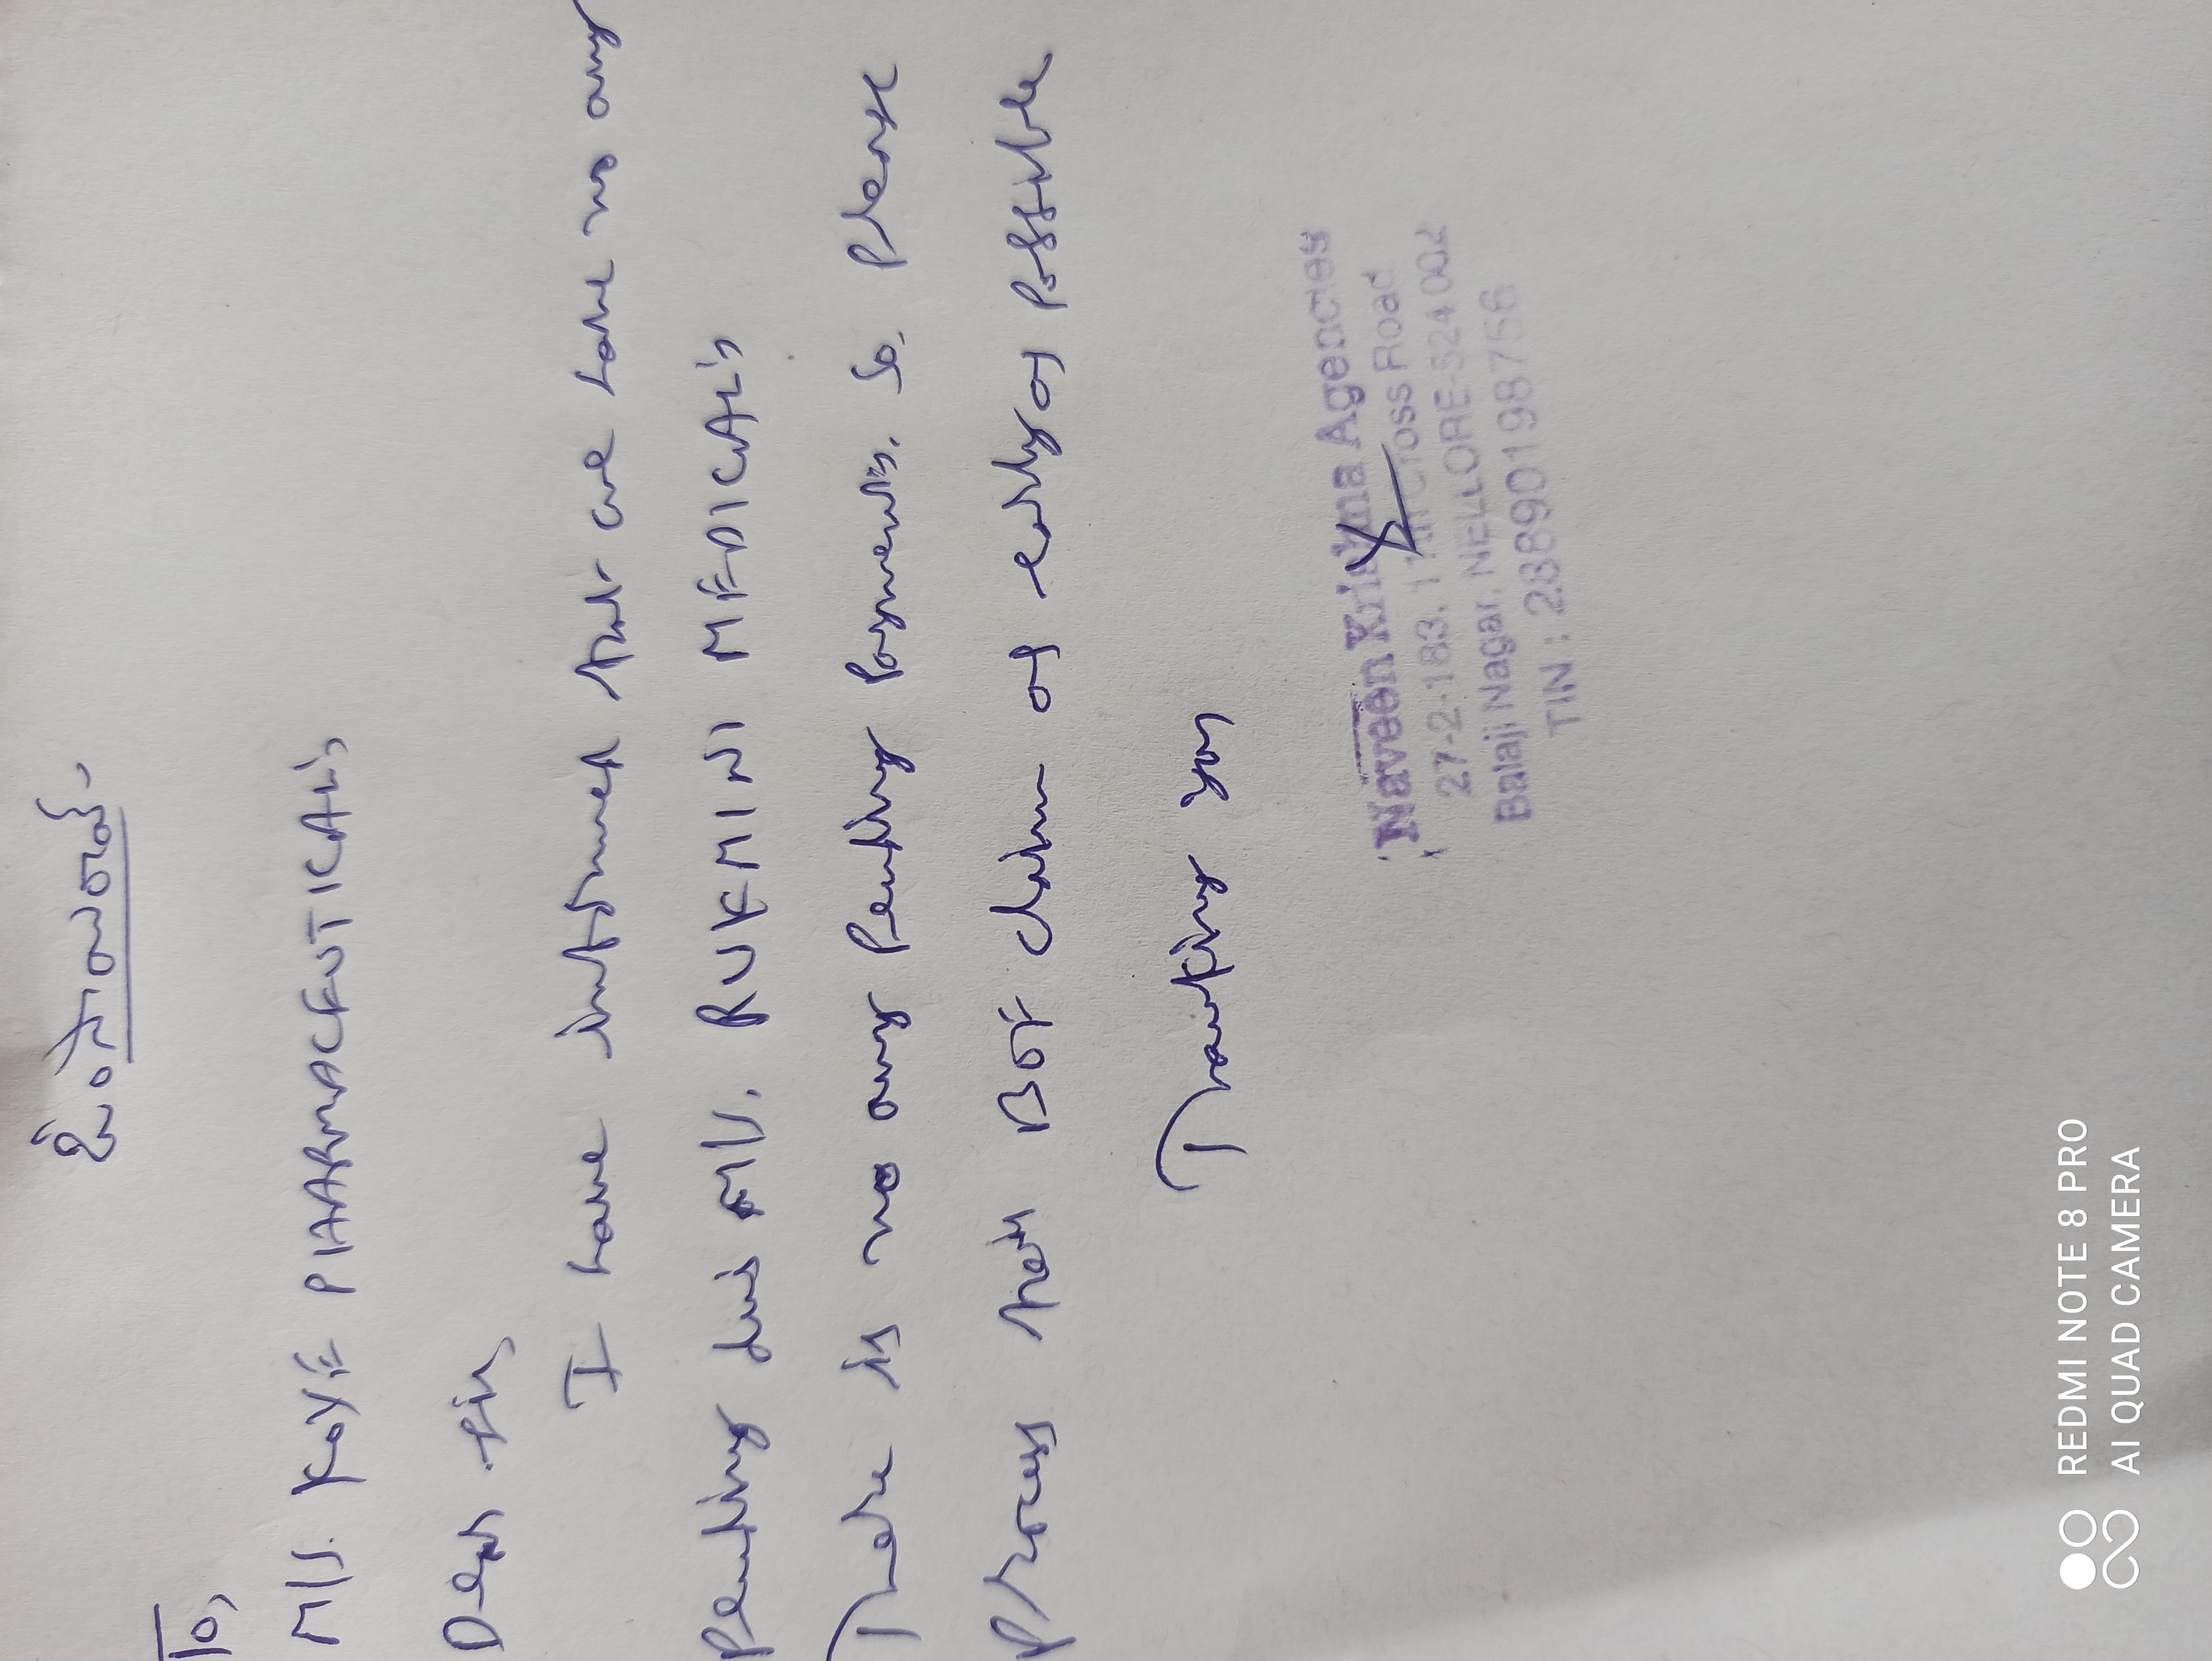 To,
M/s. KAYE PHARMACEUTICAL's
Dear Sir,
I have informed that we have no any
Pending dues M/s. RUKMINI MEDICAL's
There is no any Pending Payment's. So, Please
Process their BOE claim as early as possible
Thanking you
Naveen Krishna Agencies
27-2-183, 11th Cross Road
Balaji Nagar, NELLORE-524 002
TIN : 28890198756
REDMI NOTE 8 PRO
AI QUAD CAMERA